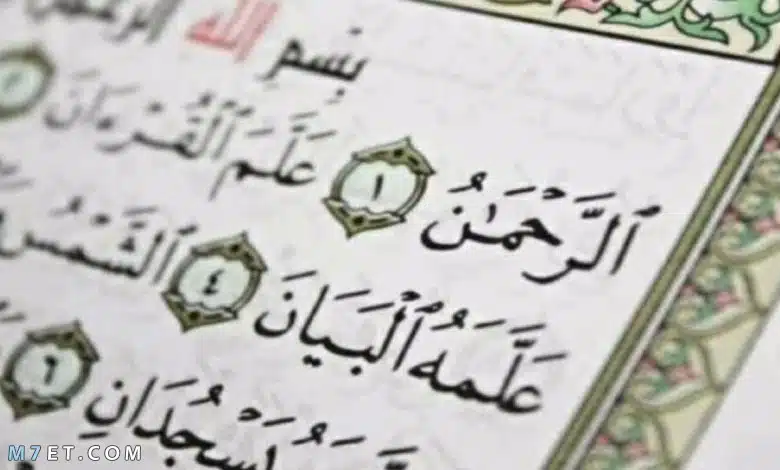 بِسْمِ اللَّهِ
ٱلرَّحْمَٰنُ ١ عَلَّمَ ٱلْقُرْءَانَ ٢
عَلَّمَهُ ٱلْبَيَانَ ٤ ٱلشَّمْسُ
يَسْجُدَانِ ٦
M7ET.COM